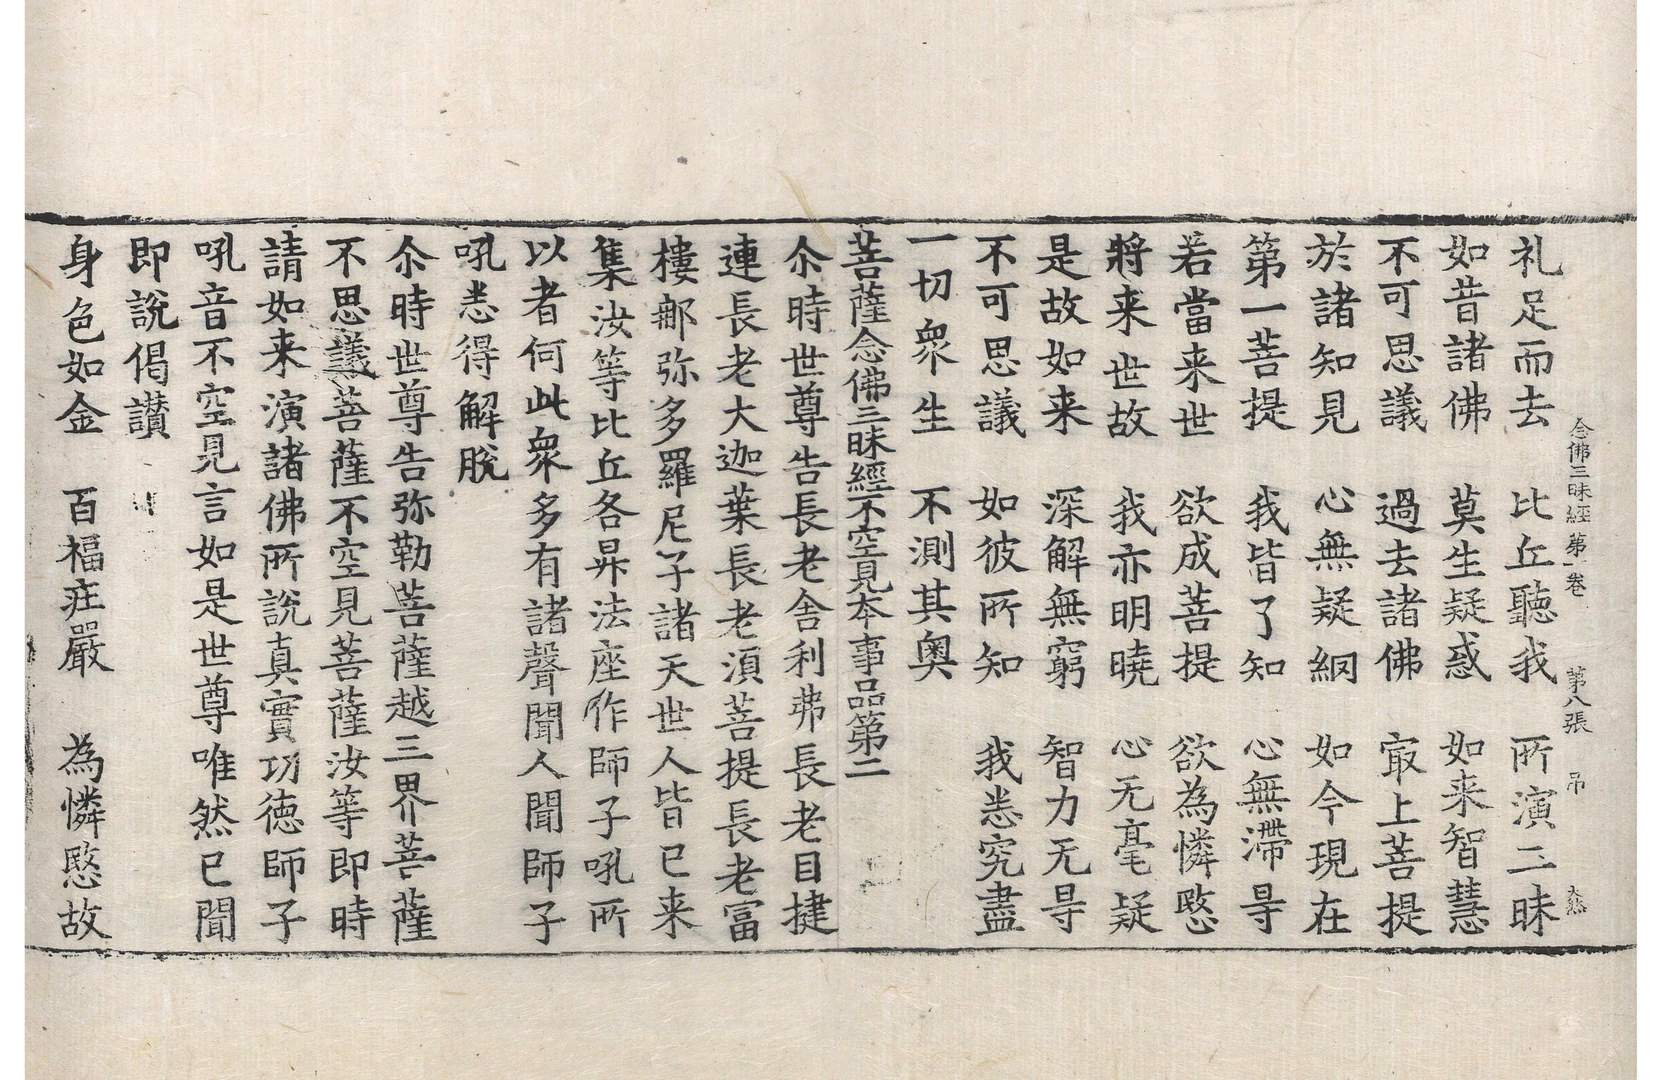 念佛三昧經第一卷　第八張　吊　大熊
礼足而去　比丘聽我　所演三昧
如昔諸佛　莫生疑惑　如来智慧
不可思議　過去諸佛　㝡上菩提
於諸知見　心無疑網　如今現在
第一菩提　我皆了知　心無滯㝵
若當来世　欲成菩提　欲為憐愍
將来世故　我亦明曉　心无毫疑
是故如来　深解無窮　智力无㝵
不可思議　如彼所知　我悉究盡
一切衆生　不測其奧
菩薩念佛三昧經不空見本事品第二
尒時世尊告長老舍利弗長老目揵
連長老大迦葉長老湏菩提長老冨
樓那弥多羅尼子諸天世人皆已来
集汝等比丘各昇法座作師子吼所
以者何此衆多有諸聲聞人聞師子
吼悉得解脫
尒時世尊告弥勒菩薩越三界菩薩
不思議菩薩不空見菩薩汝等即時
請如来演諸佛所說真實功德師子
吼音不空見言如是世尊唯然已聞
即說偈讃
身色如金　百福㽵嚴　為憐愍故